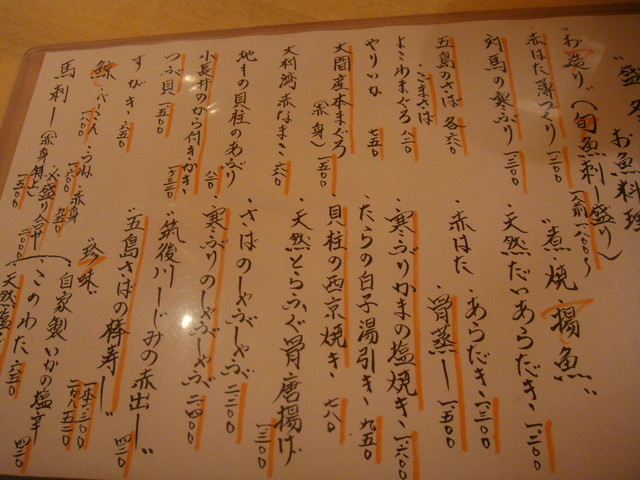 お魚料理
"お造り"(旬魚刺し盛り)
赤はた薄づくり 一三〇〇
対馬の寒ぶり 一三〇〇
五島のさば 各六〇
ごまさば
よこわまぐろ 八二〇
やりいか 七五〇
大間産本まぐろ
(赤身) 一五〇〇
大村湾赤なまこ 六〇
地もの貝柱のあぶり
小長井のから付きかき 八二〇
つぶ貝 一五〇〇
すがき 六五〇
鯨・ベーコン・うね・赤身
馬刺し(赤身・特上) 一五〇〇
"煮・焼・揚魚"
・天然だいあらだき 一二〇〇
・赤はた・あらだき 一三〇〇
骨蒸し 一五〇〇
・寒ぶりかまの塩焼き 一六〇〇
・たらの白子湯引き 九五〇
・貝柱の西京焼き 七八〇
・天然とらふぐ骨唐揚げ 一三〇〇
・さばのしゃぶしゃぶ 二二〇〇
・寒ぶりのしゃぶしゃぶ 二四〇〇
"筑後川しじみの赤出し" 四二〇
"五島さばの棒寿し"
"珍味"
自家製いかの塩辛 四二〇
このわた 六五〇